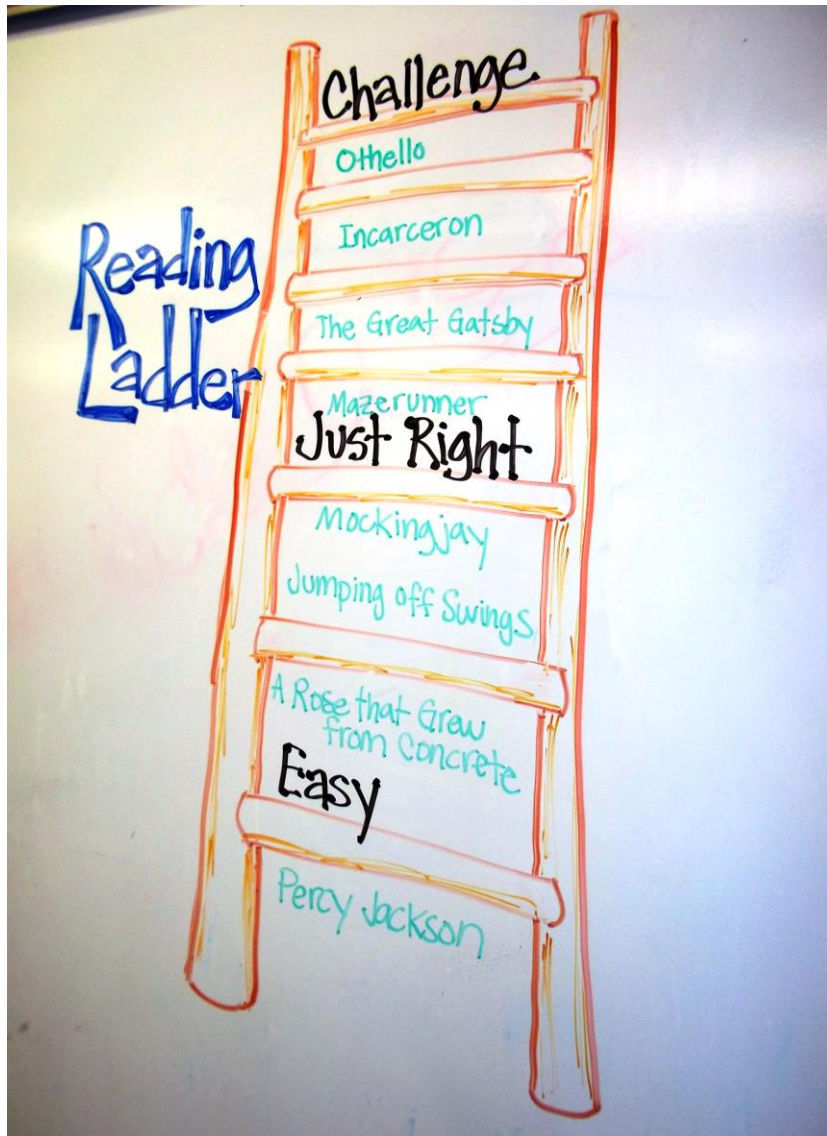 Reading
Ladder
Challenge
Othello
Incarceron
The Great Gatsby
Mazerunner
Just Right
Mockingjay
Jumping off Swings
A Rose that Grew
from Concrete
Easy
Percy Jackson